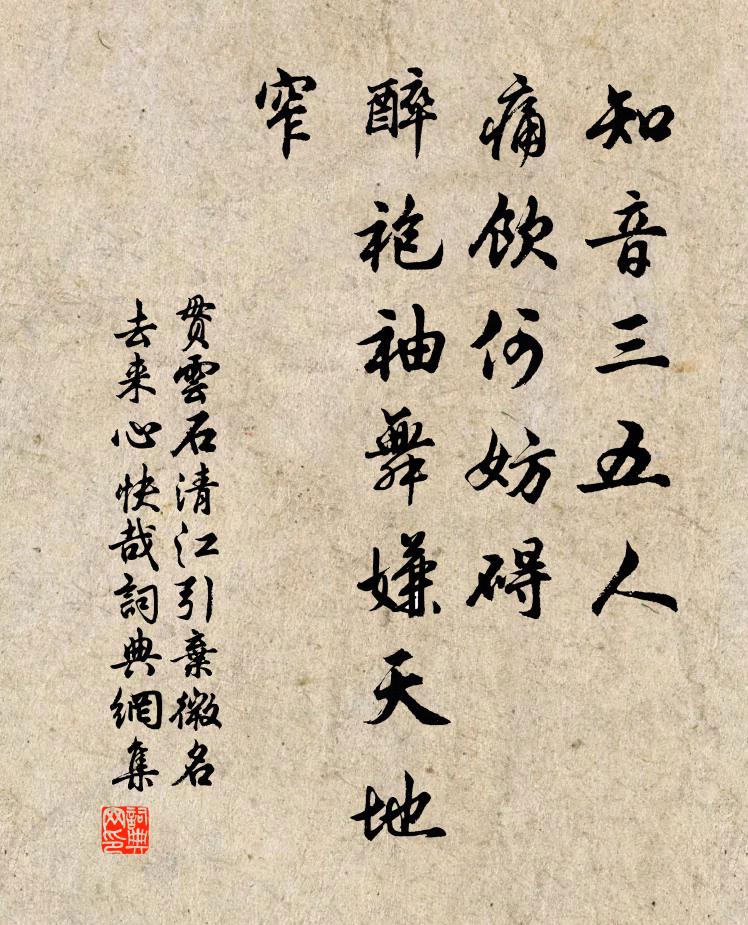 知音三五人
痛飲何妨碍
醉袍袖舞嫌天地
窄
貫雲石清江引棄微名
去来心快哉詞典網集
詞典
网印